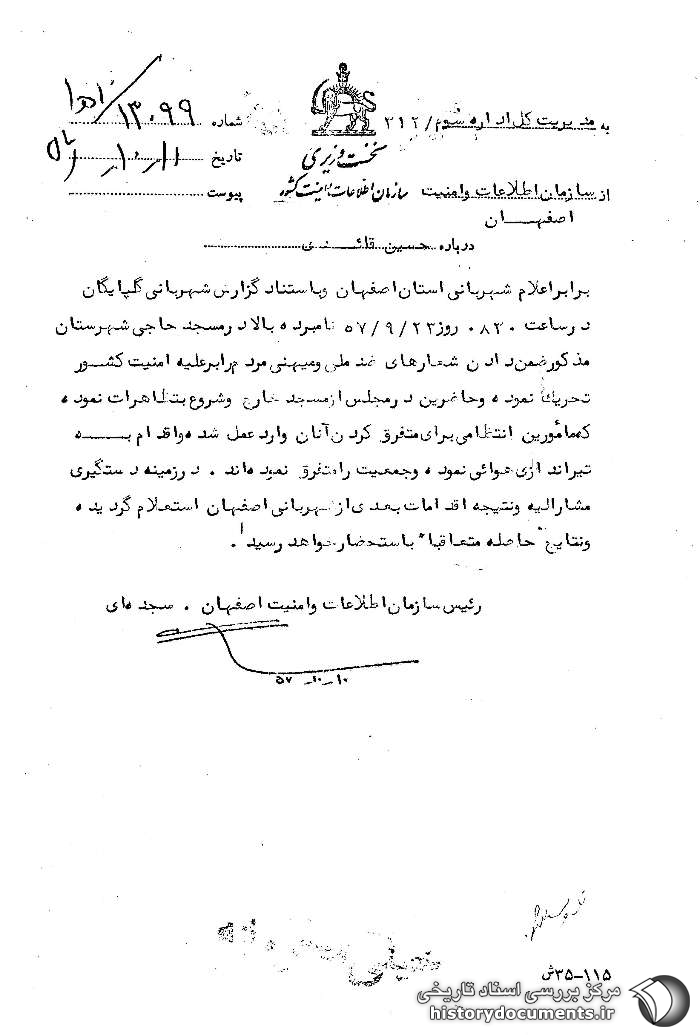 به مدیریت کل اداره سوم / ۳۱۲
شماره ۱۳۰۹۹/
نخست وزیری
تاریخ ۱۱ـ۱۰ـ
از سازمان اطلاعات وامنیت
سازمان اطلاعات و امنیت کشور
پیوست
اصفهـــان
درباره حسین
برابراعلام شهربانی استان اصفهان وباستناد گزارش شهربانی گلپایگان
درساعت ۰۸۳۰ روز ۵۷/۹/۲۳ نامبرده بالا درمسجد حاجی شهرستان
مذکورضمن دادن شعارهای ضد ملی ومیهنی مردم رابرعلیه امنیت کشور
تحریک نموده وحاضرین درمجلس ازمسجد خارج وشروع بتظاهرات نموده
که مأمورین انتظامی برای متفرق کردن آنان وارد عمل شده واقدام بــــه
تیراندازی هوائی نموده وجمعیت رامتفرق نموده اند . درزمینه دستگیری
مشارالیه ونتیجه اقدامات بعدی ازشهربانی اصفهان استعلام گردیده
ونتایج حاصله متعاقبا" باستحضارخواهد رسید .
رئیس سازمان اطلاعات وامنیت اصفهان .
۵۷ـ۱۰ـ۱۰
۳۵ـ۱۱۵ش
مرکز بررسی اسناد تاریخی
historydocuments.ir